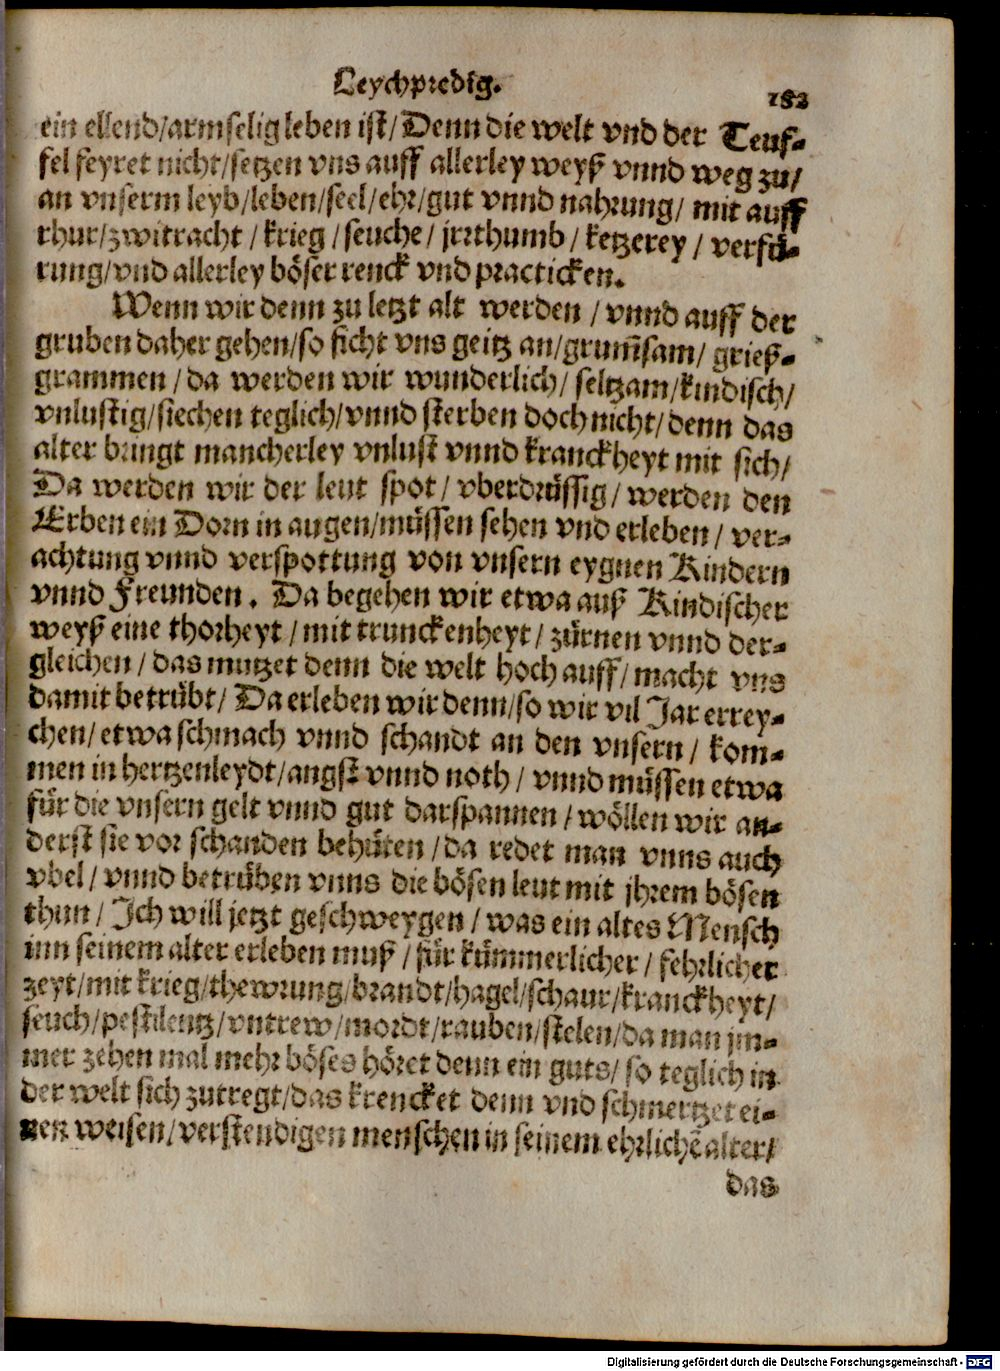 Leychpredig.
182
ein ellend/armselig leben ist/Denn die welt vnd der Teuf-
fel feyret nicht/setzen vns auff allerley weyß vnnd weg zu/
an vnserm leyb/leben/seel/ehr/gut vnnd nahrung/ mit auff
rhur/zwitracht / krieg / seuche / jrrthumb / ketzerey / verfü-
rung/vnd allerley böser renck vnd practicken.
Wenn wir denn zu letzt alt werden / vnnd auff der
gruben daher gehen/so ficht vns geitz an/grum̃sam/ grieß-
grammen / da werden wir wunderlich/ seltzam/kindisch/
vnlustig/siechen teglich/vnnd sterben doch nicht/ denn das
alter bringt mancherley vnlust vnnd kranckheyt mit sich/
Da werden wir der leut spot / vberdrüssig / werden den
Erben ein Dorn in augen/müssen sehen vnd erleben / ver-
achtung vnnd verspottung von vnsern eygnen Kindern
vnnd Freunden. Da begehen wir etwa auß Kindischer
weyß eine thorheyt / mit trunckenheyt/ zürnen vnnd der-
gleichen / das mutzet denn die welt hoch auff / macht vns
damit betrübt/ Da erleben wir denn/so wir vil Jar errey-
chen/ etwa schmach vnnd schandt an den vnsern / kom-
men in hertzenleydt/angst vnnd noth / vnnd müssen etwa
für die vnsern gelt vnnd gut darspannen / wöllen wir an-
derst sie vor schanden behüten / da redet man vnns auch
vbel / vnnd betrüben vnns die bösen leut mit jhrem bösen
thun / Ich will jetzt geschweygen / was ein altes Mensch
inn seinem alter erleben muß / für kümmerlicher / fehrlicher
zeyt/mit krieg/thewrung/brandt/hagel/schaur/kranckheyt/
seuch/pestilentz/vntrew/mordt/rauben/stelen/da man jm-
mer zehen mal mehr böses höret denn ein guts/ so teglich in
der welt sich zutregt/das krencket denn vnd schmertzet ei-
nen weisen/verstendigen menschen in seinem ehrlichẽ alter/
das
Digitalisierung gefördert durch die Deutsche Forschungsgemeinschaft - DFG